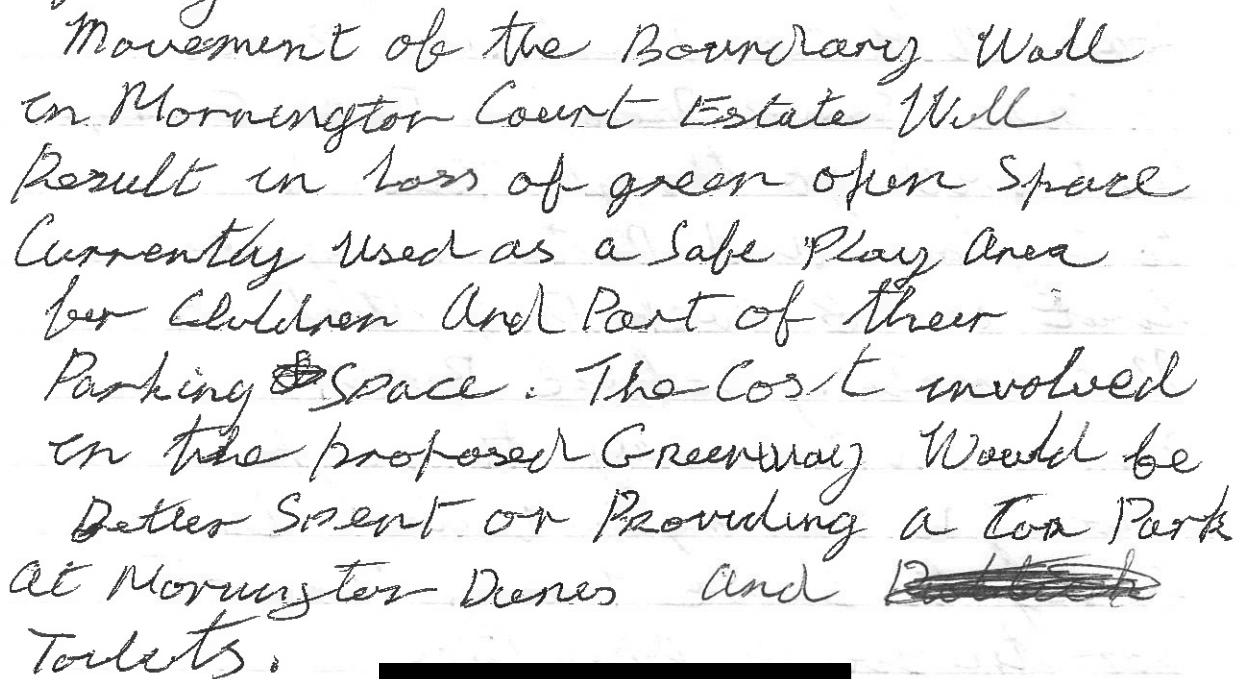 Movement of the Boundary Wall
in Mornington Court Estate Will
Result in Loss of green open Space
Currently Used as a Safe Play Area
for Children And Part of their
Parking Space. The Cost involved
in the proposed Greenway Would be
Better Spent on Providing a Car Park
at Mornington Dunes and
Toilets.